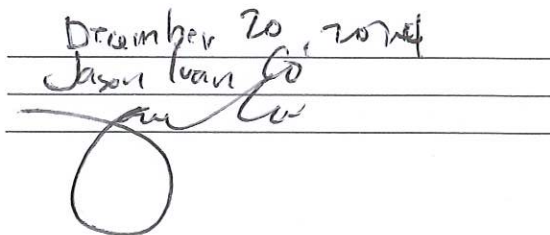 December 20, 2024
Jason Ivan Co